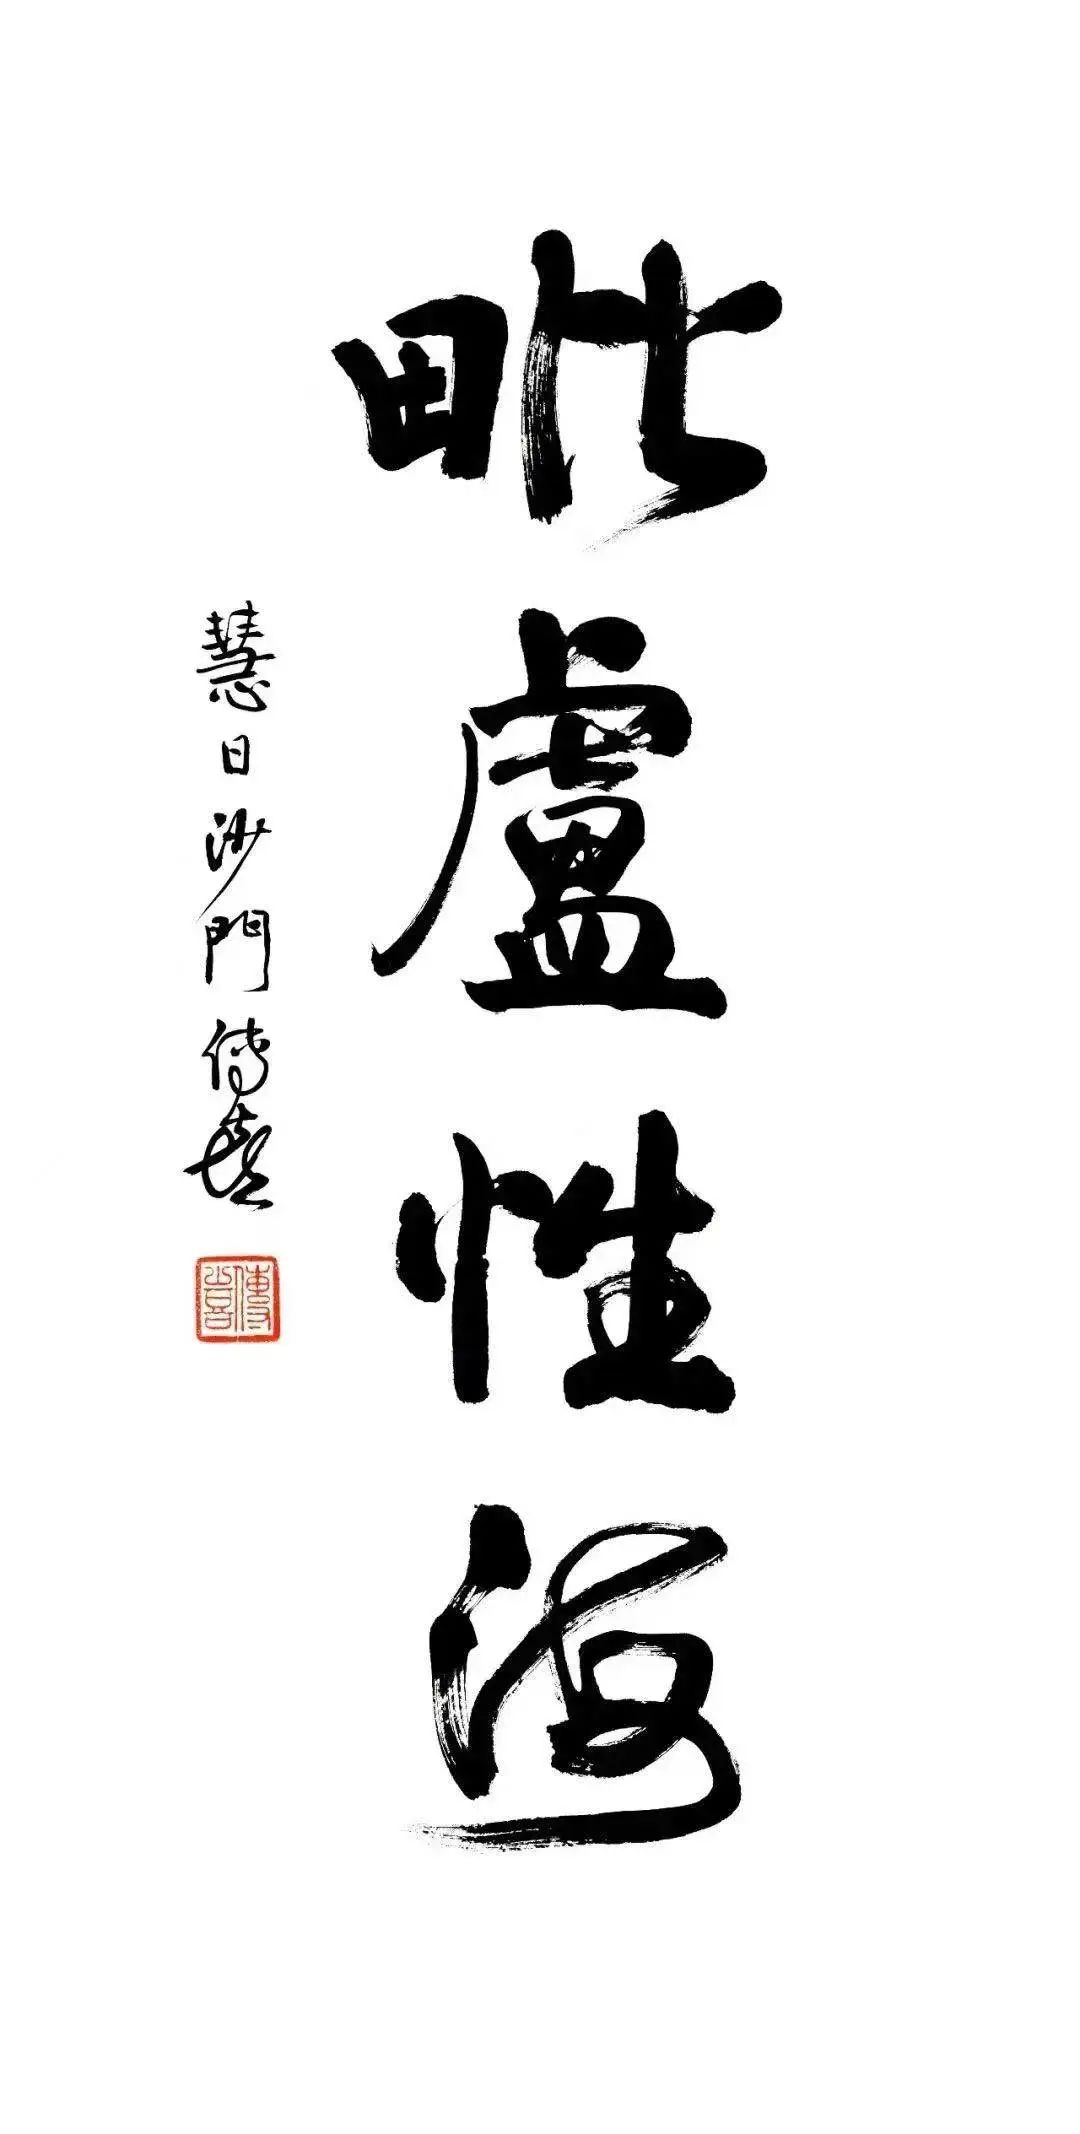 毗盧性海
慧日沙門傳喜
傳喜